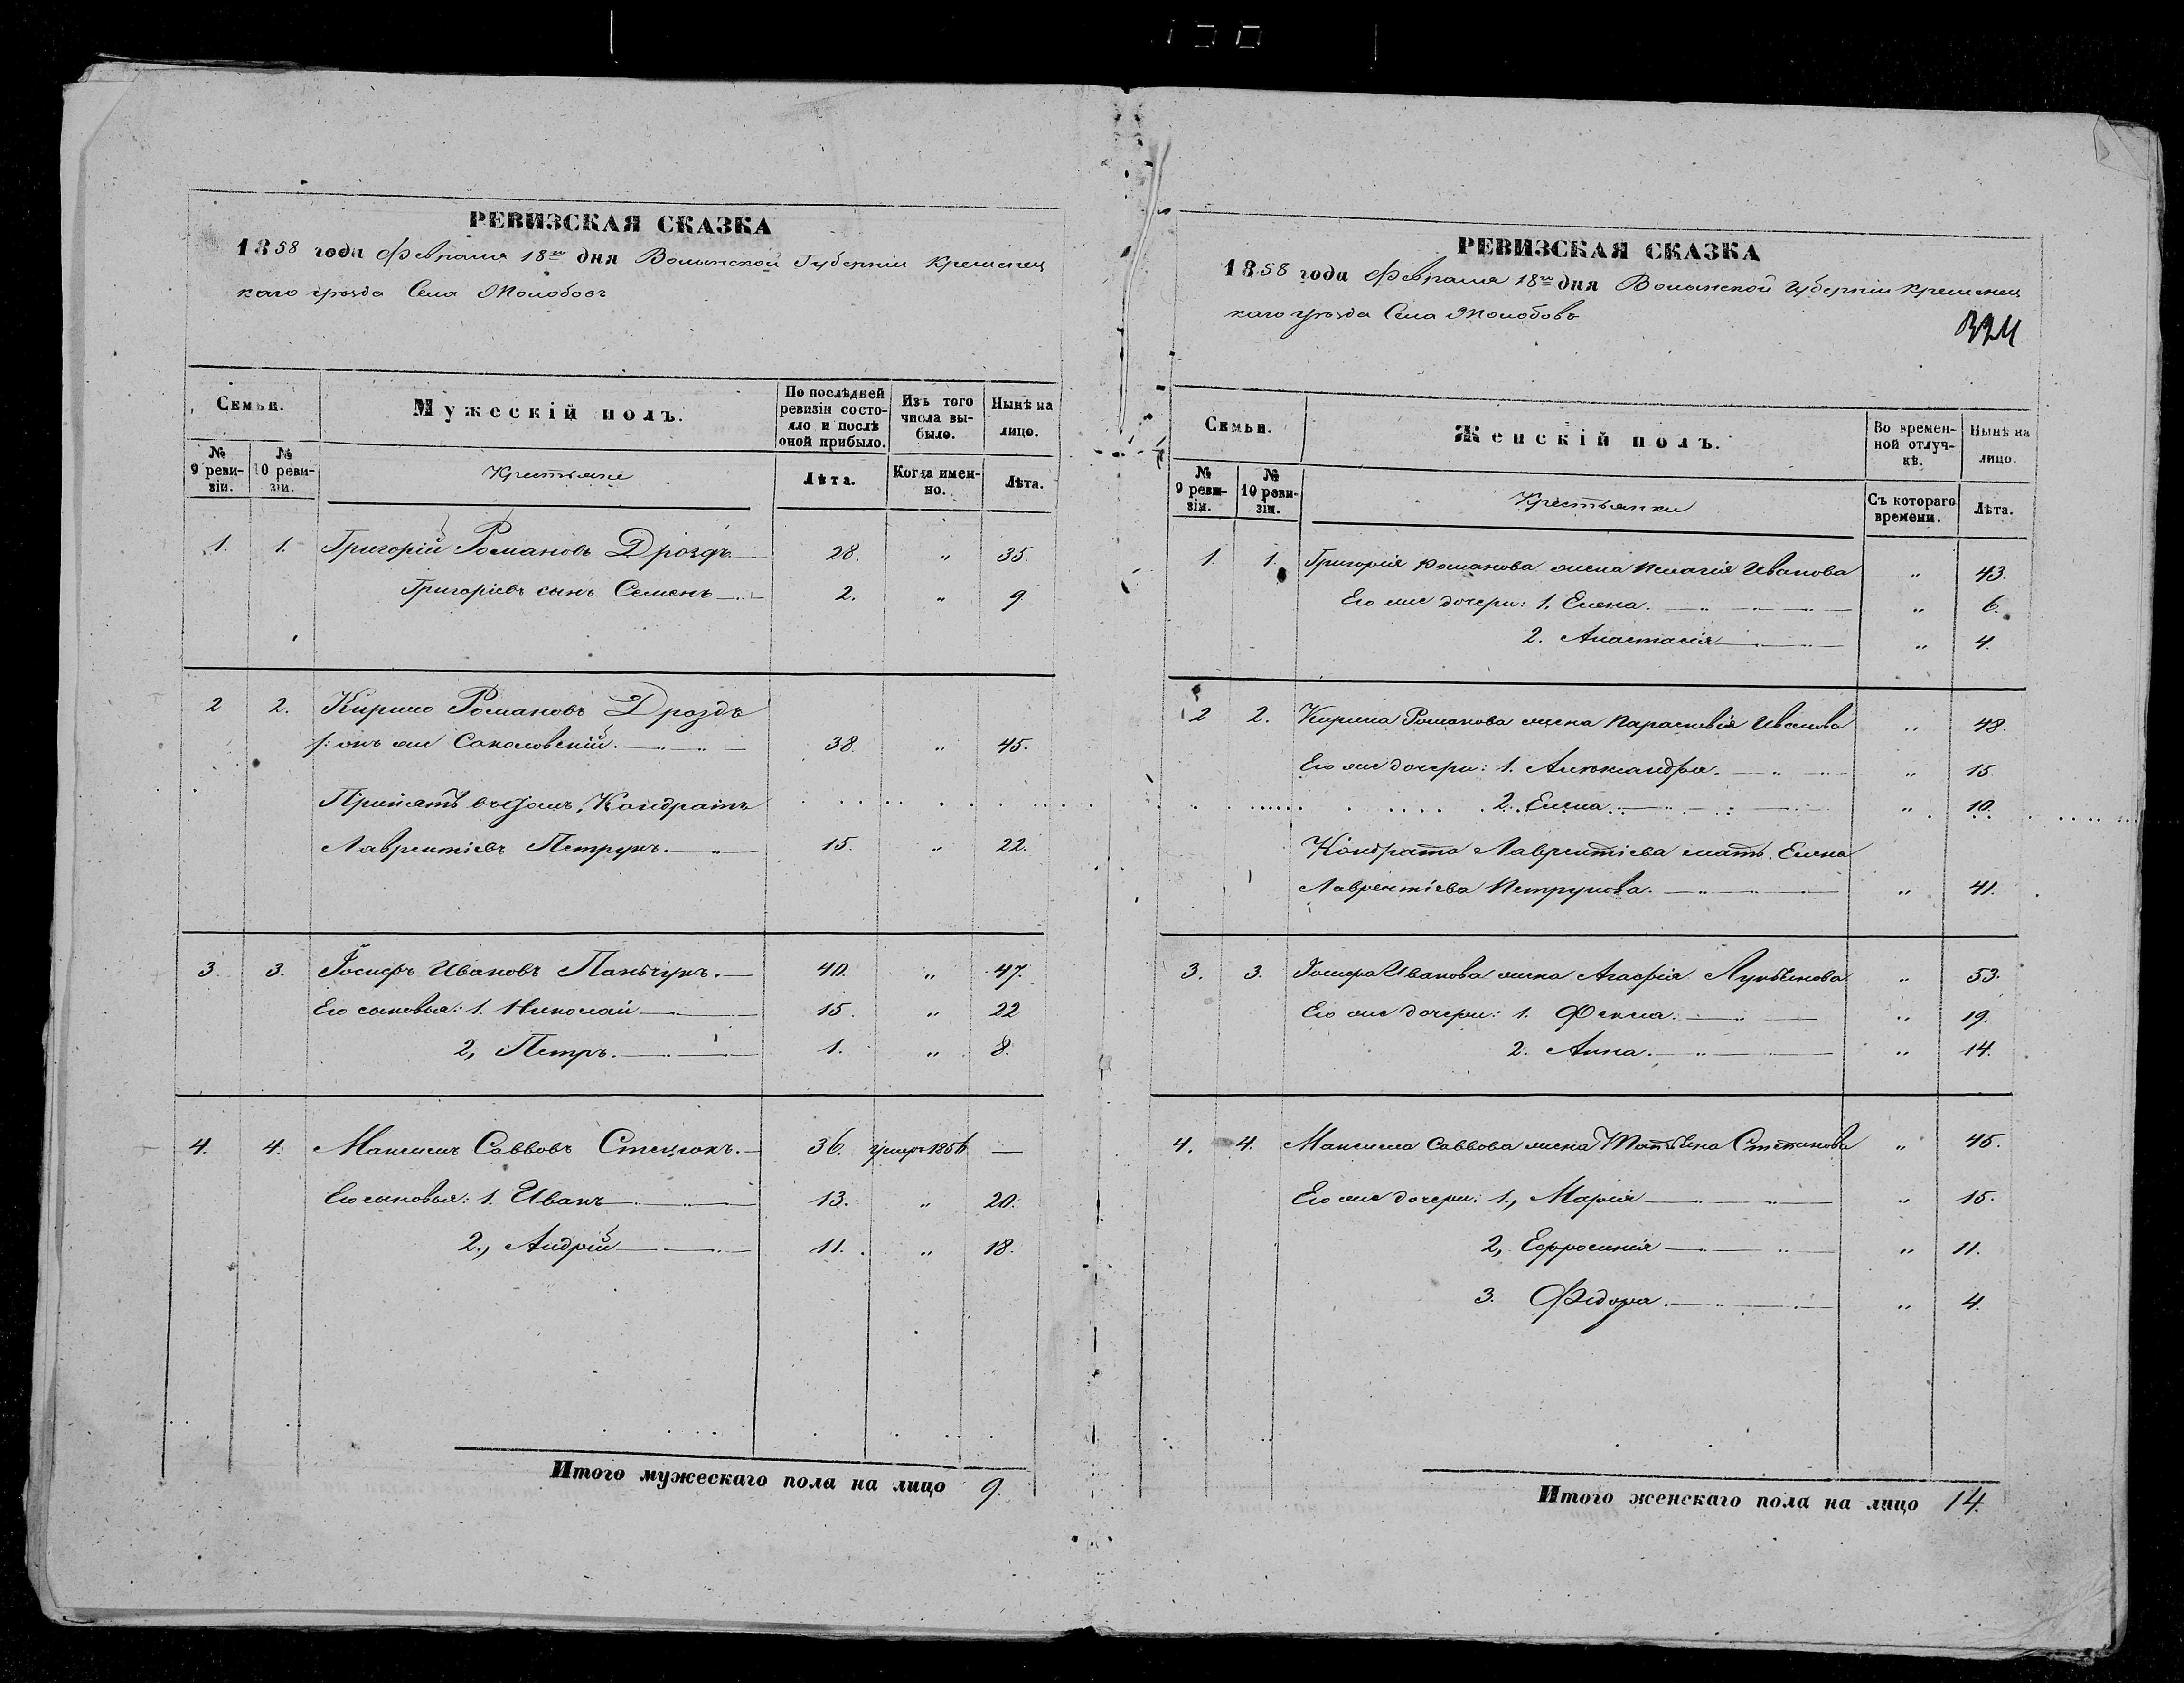 РЕВИЗСКАЯ СКАЗКА
1858 года Февраля 18го дня Волынской Губерніи Кременец
каго уѣзда Села Жолобовъ
Семьи.
Мужескій полъ.
По послѣдней ревизіи состояло и послѣ оной прибыло.
Изъ того числа выбыло.
Нынѣ на лицо.
№ 9 ревизіи.
№ 10 ревизіи.
Крестьяне
Лѣта.
Когда именно.
Лѣта.
1. 1. Григорій Романовъ Дроздъ 28. " 35.
Григоріевъ сынъ Семенъ 2. " 9
2 2. Кирило Романовъ Дроздъ
/: онъ же Соколовскій. 38. " 45.
Принятъ въ домъ, Кондратъ
Лаврентіевъ Петрукъ. 15. " 22.
3. 3. Іосифъ Ивановъ Паньчукъ. 40. " 47.
Его сыновья: 1. Николай 15. " 22
2, Петръ. 1. " 8.
4. 4. Максимъ Саввовъ Стецюкъ. 36. умеръ 1856 —
Его сыновья: 1. Иванъ 13. " 20.
2., Андрій 11. " 18.
Итого мужескаго пола на лицо 9.
РЕВИЗСКАЯ СКАЗКА
1858 года Февраля 18го дня Волынской Губерніи Кременец
каго уѣзда Села Жолобовъ
Семьи.
Женскій полъ.
Во временной отлучкѣ.
Нынѣ на лицо.
№ 9 ревизіи.
№ 10 ревизіи.
Крестьянки
Съ котораго времени.
Лѣта.
1. 1. Григорія Романова жена Пелагія Иванова " 43.
Его же дочери: 1. Елена. " 6.
2. Анастасія " 4.
2 2. Кирила Романова жена Парасковія Иванова " 48.
Его же дочери: 1. Александра. " 15.
2. Елена. " 10.
Кондрата Лаврентіева мать. Елена
Лаврентіева Петрукова. " 41.
3. 3. Іосифа Иванова жена Агафія Лукьянова " 53.
Его же дочери: 1. Фекла. " 19.
2. Анна. " 14.
4. 4. Максима Саввова жена Татьяна Степанова " 45.
Его же дочери: 1., Марія " 15.
2, Ефросинія " 11.
3. Федора. " 4.
Итого женскаго пола на лицо 14.